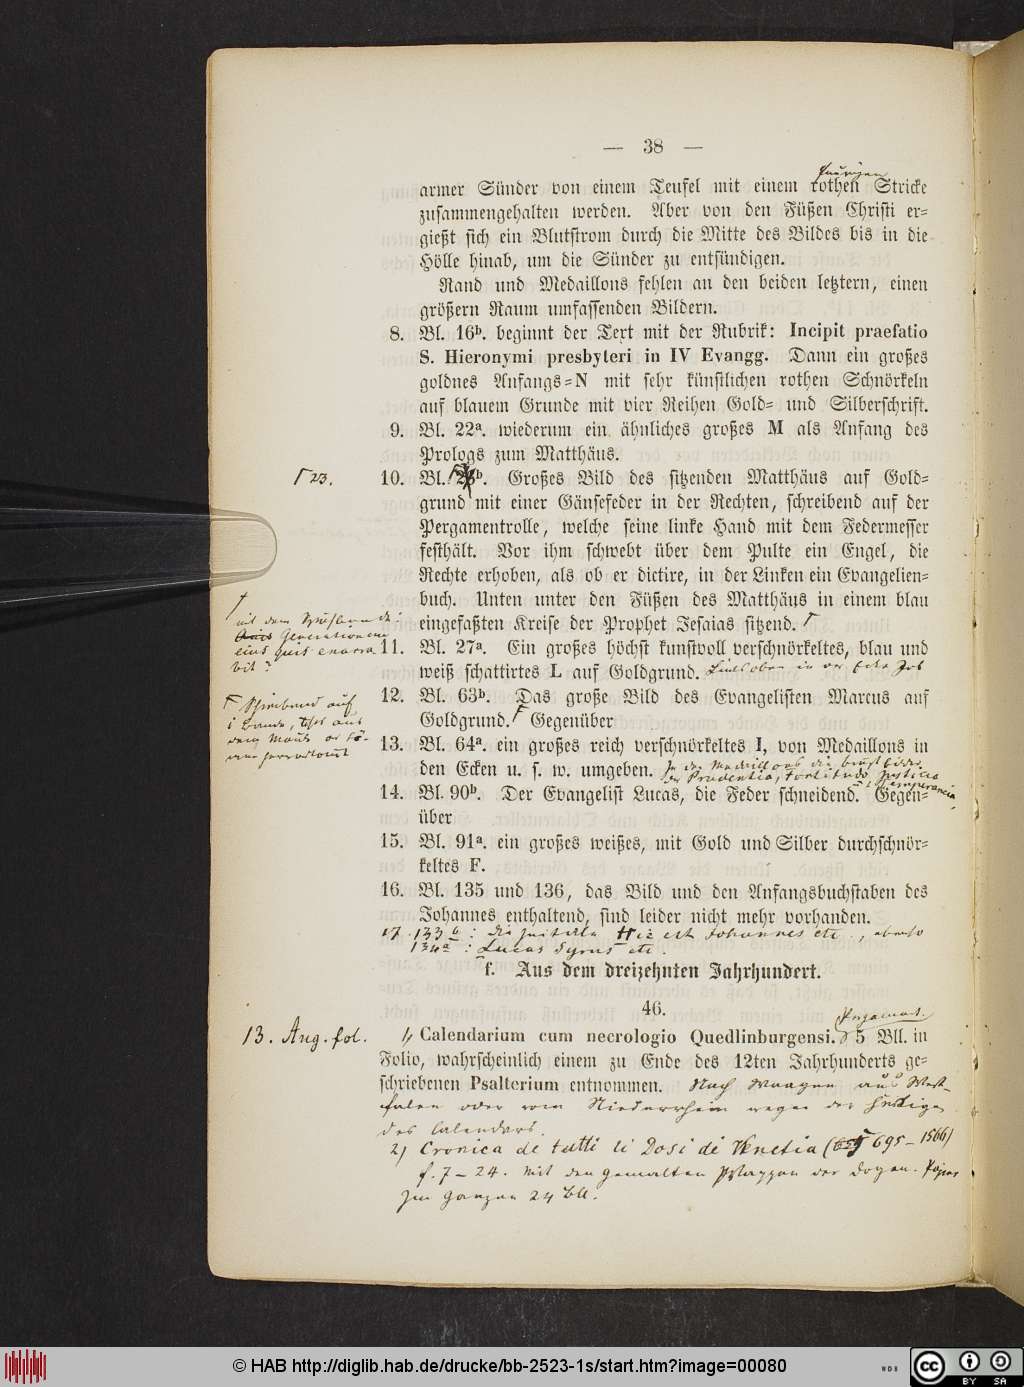 — 38 —
feurigen
armer Sünder von einem Teufel mit einem rothen Stricke
zusammengehalten werden. Aber von den Füßen Christi er=
gießt sich ein Blutstrom durch die Mitte des Bildes bis in die
Hölle hinab, um die Sünder zu entsündigen.
Rand und Medaillons fehlen an den beiden letztern, einen
größern Raum umfassenden Bildern.
8. Bl. 16b. beginnt der Text mit der Rubrik: Incipit praefatio
S. Hieronymi presbyteri in IV Evangg. Dann ein großes
goldnes Anfangs=N mit sehr künstlichen rothen Schnörkeln
auf blauem Grunde mit vier Reihen Gold= und Silberschrift.
9. Bl. 22a. wiederum ein ähnliches großes M als Anfang des
Prologs zum Matthäus.
23.
10. Bl. b. Großes Bild des sitzenden Matthäus auf Gold=
grund mit einer Gänsefeder in der Rechten, schreibend auf der
Pergamentrolle, welche seine linke Hand mit dem Federmesser
festhält. Vor ihm schwebt über dem Pulte ein Engel, die
Rechte erhoben, als ob er dictire, in der Linken ein Evangelien=
buch. Unten unter den Füßen des Matthäus in einem blau
eingefaßten Kreise der Prophet Jesaias sitzend.
mit dem Spruchbande:
Generationem
eius quis enarra
bit?
11. Bl. 27a. Ein großes höchst kunstvoll verschnörkeltes, blau und
weiß schattirtes L auf Goldgrund. Links oben in der Ecke
12. Bl. 63b. Das große Bild des Evangelisten Marcus auf
Goldgrund. Gegenüber
Schreibend auf
13. Bl. 64a. ein großes reich verschnörkeltes I, von Medaillons in
den Ecken u. s. w. umgeben. In den Medaillons die
der Prudentia, Fortitudo, Justicia
Temperancia.
14. Bl. 90b. Der Evangelist Lucas, die Feder schneidend. Gegen=
über
15. Bl. 91a. ein großes weißes, mit Gold und Silber durchschnör=
keltes F.
16. Bl. 135 und 136, das Bild und den Anfangsbuchstaben des
Johannes enthaltend, sind leider nicht mehr vorhanden.
17. 133b: die Initiale Hic est Johannes etc., ebenso
134a: Lucas Syrus etc.
f. Aus dem dreizehnten Jahrhundert.
46.
Pergament.
13. Aug. fol.
1) Calendarium cum necrologio Quedlinburgensi. 5 Bll. in
Folio, wahrscheinlich einem zu Ende des 12ten Jahrhunderts ge=
schriebenen Psalterium entnommen. Nach Waagen aus West-
falen oder vom Niederrhein wegen der Heiligen
des Calendars.
2) Cronica de tutti li Dosi de Venetia (695–1566)
f. 7–24. Mit den gemalten Wappen der Dogen. Papier
Im Ganzen 24 Bll.
© HAB http://diglib.hab.de/drucke/bb-2523-1s/start.htm?image=00080
WDB
cc BY SA